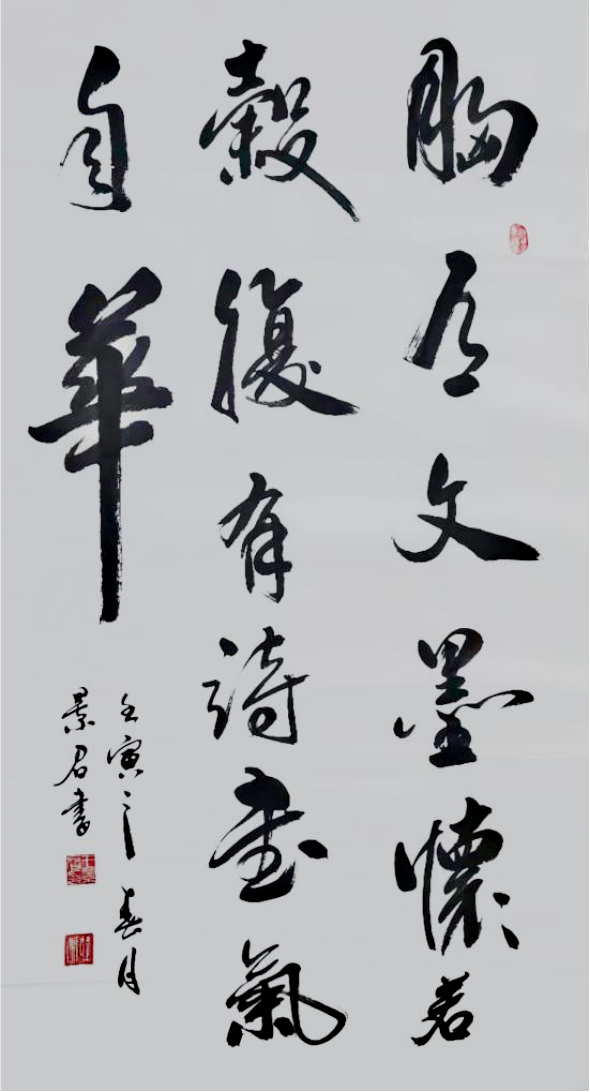 胸有文墨懷若
穀腹有詩書氣
自華
壬寅之春月
景君書